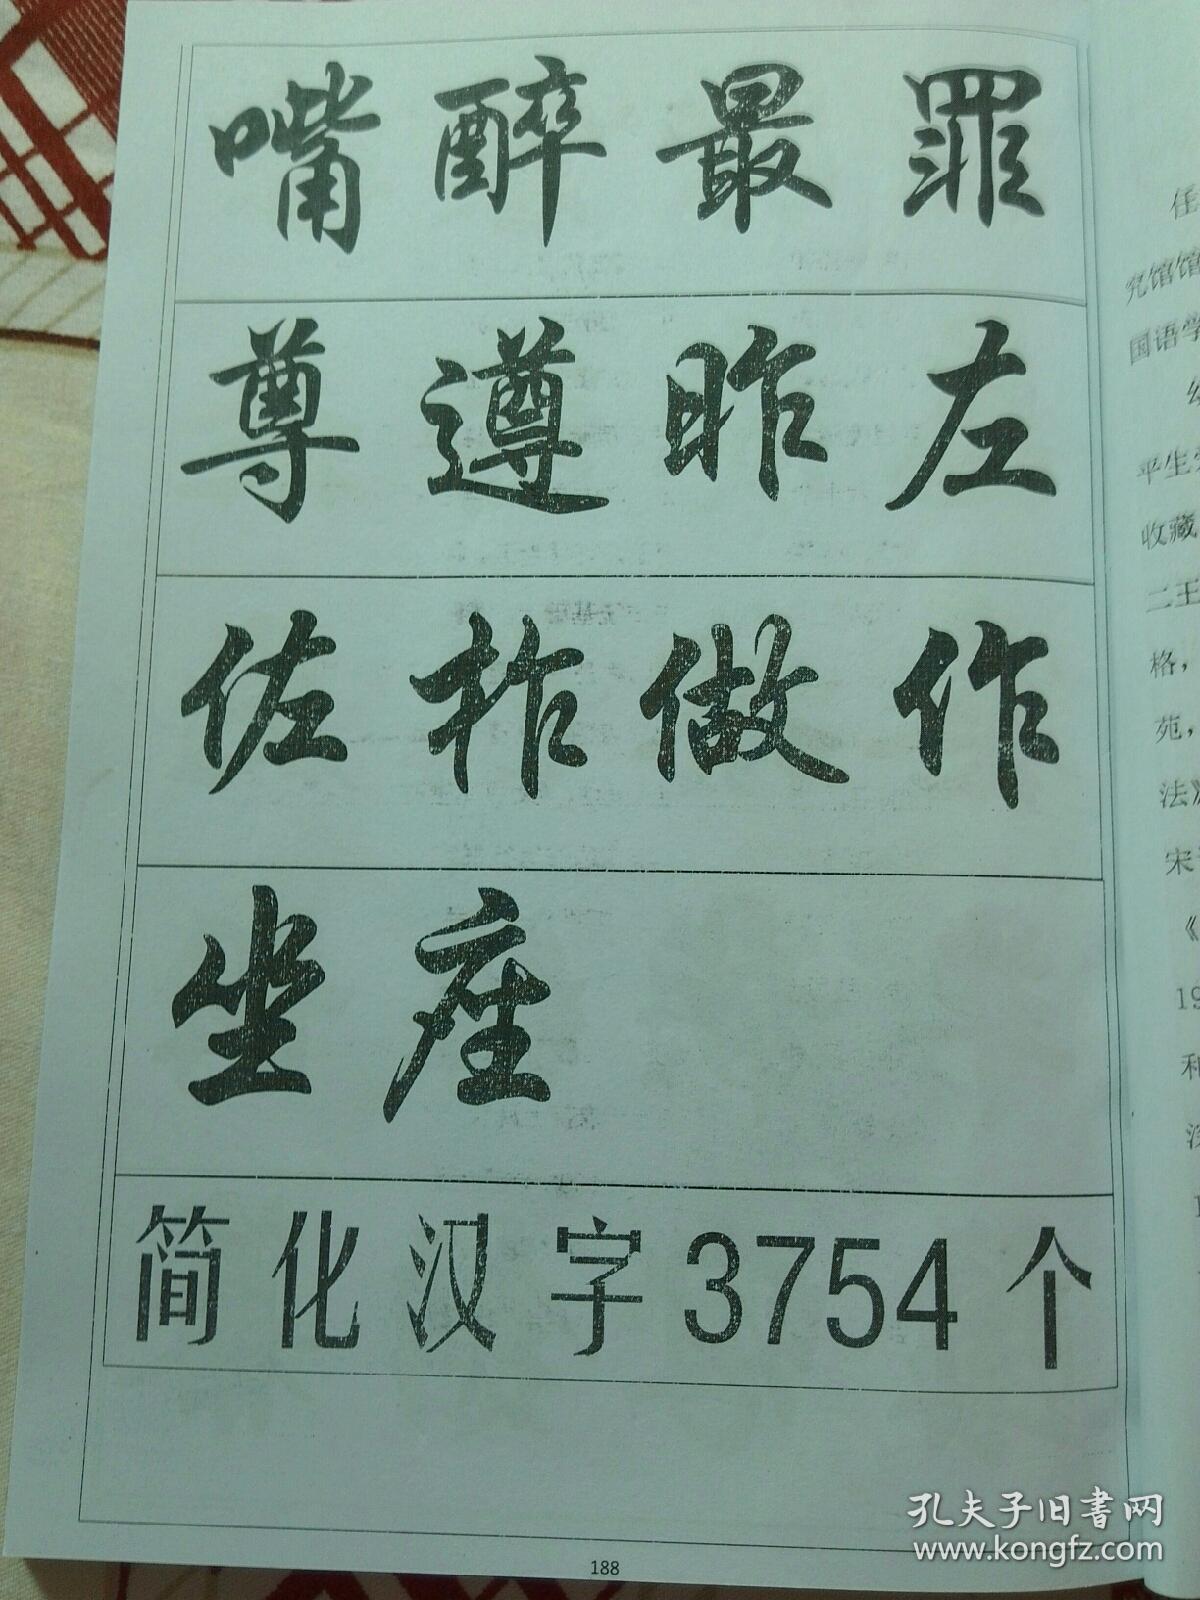 嘴醉最罪
尊遵昨左
佐柞做作
坐座
简化汉字3754个
188
究馆馆
国语学
平生
收藏
二王
格，
苑，
法》
宋
《
19
和
孔夫子旧書网
www.kongfz.com